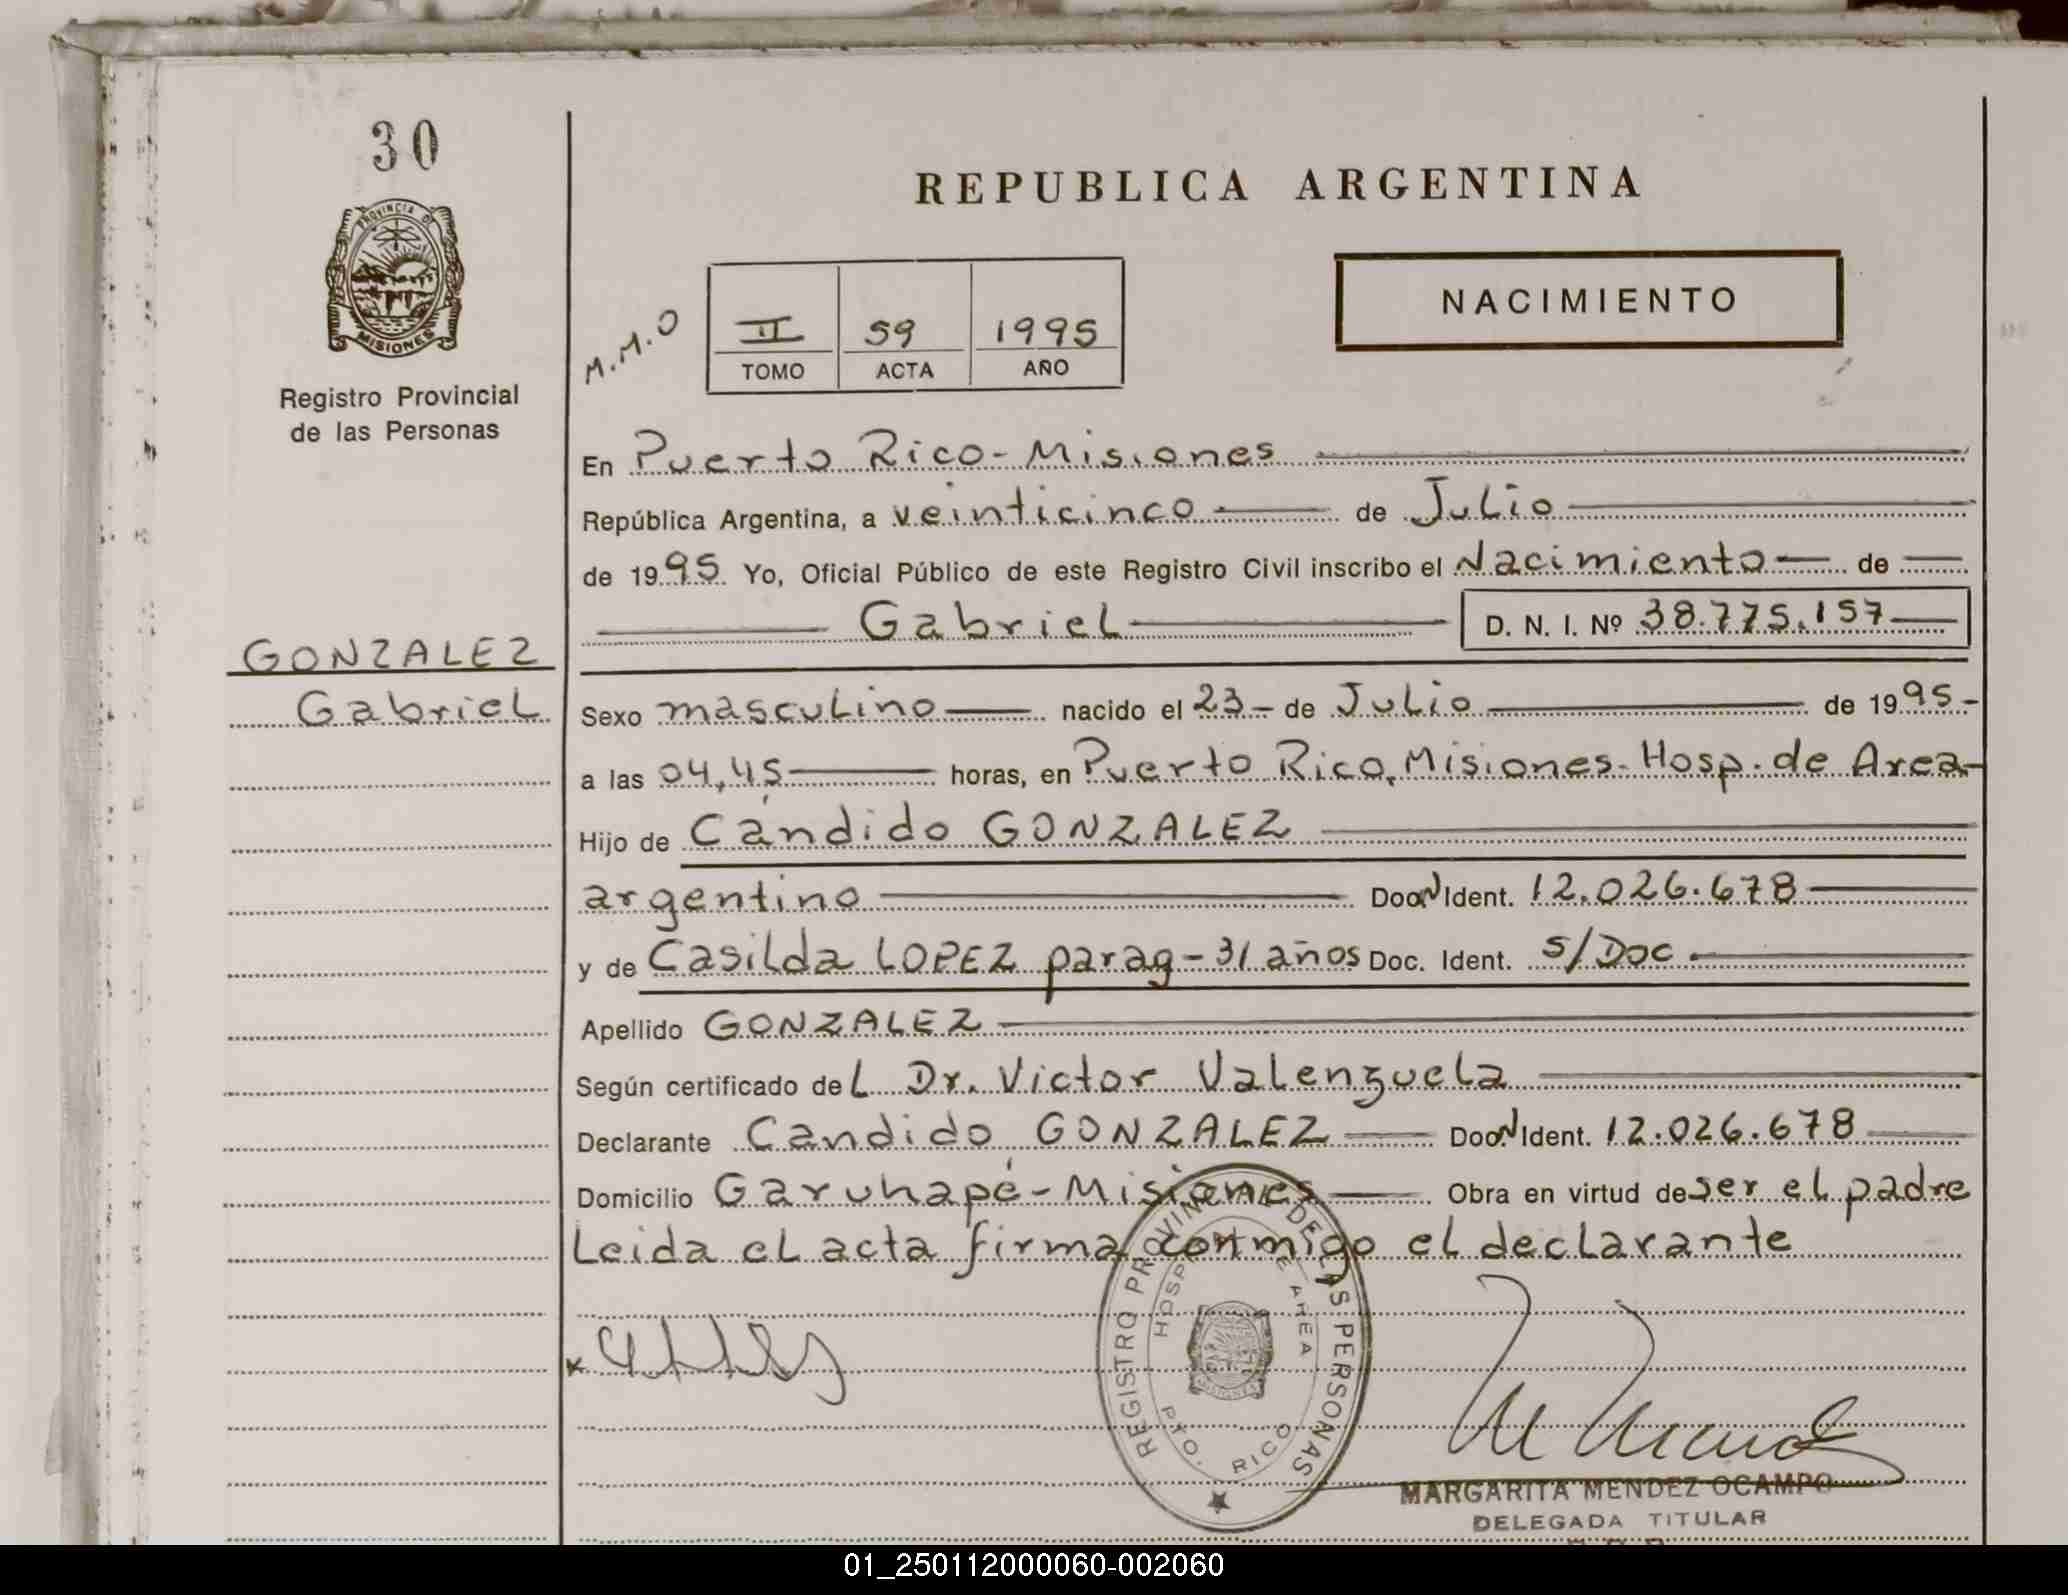 30
PROVINCIA D
MISIONES
Registro Provincial
de las Personas
GONZALEZ
Gabriel
REPUBLICA ARGENTINA
NACIMIENTO
M.M.O
II 59 1995
TOMO ACTA AÑO
En Puerto Rico - Misiones
República Argentina, a veinticinco de Julio
de 1995 Yo, Oficial Público de este Registro Civil inscribo el Nacimiento de
Gabriel D. N. I. Nº 38.775.157
Sexo masculino nacido el 23 - de Julio de 1995 -
a las 04,45 horas, en Puerto Rico, Misiones - Hosp. de Area -
Hijo de Cándido GONZALEZ
argentino Ident. 12.026.678
y de Casilda LOPEZ parag - 31 años Doc. Ident. S/Doc
Apellido GONZALEZ
Según certificado del Dr. Victor Valenzuela
Declarante Candido GONZALEZ Ident. 12.026.678
Domicilio Garuhapé - Misiones Obra en virtud de ser el padre
Leida el acta firma conmigo el declarante
REGISTRO PROVINCIAL DE LAS PERSONAS
HOSP DE AREA
PTO. RICO
MARGARITA MENDEZ OCAMPO
DELEGADA TITULAR
01_250112000060-002060